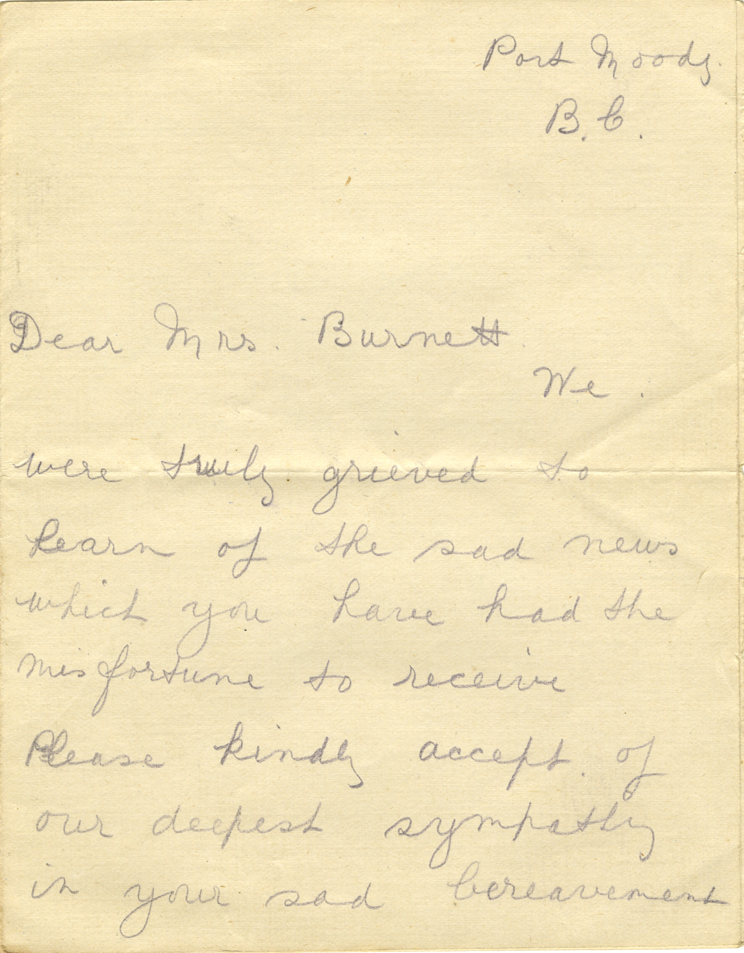 Port Moody.
B.C.
Dear Mrs. Burnett
We.
were truly grieved to
learn of the sad news
which you have had the
misfortune to receive
Please kindly accept of
our deepest sympathy
in your sad bereavement